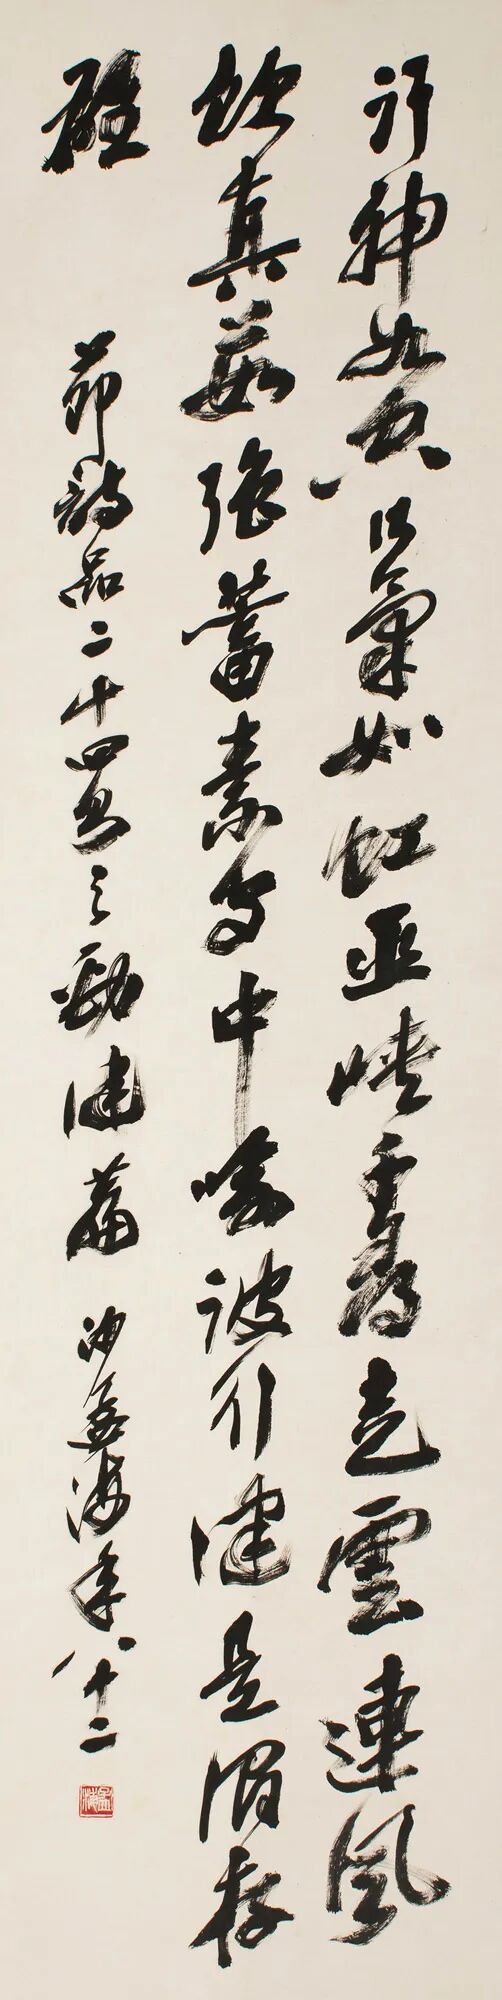 行神如空行氣如虹巫峽千尋走雲連風
飲真茹強蓄素守中喻彼行健是謂存
雄
節詩品二十四則之勁健篇 沙孟海年八十二
孟海